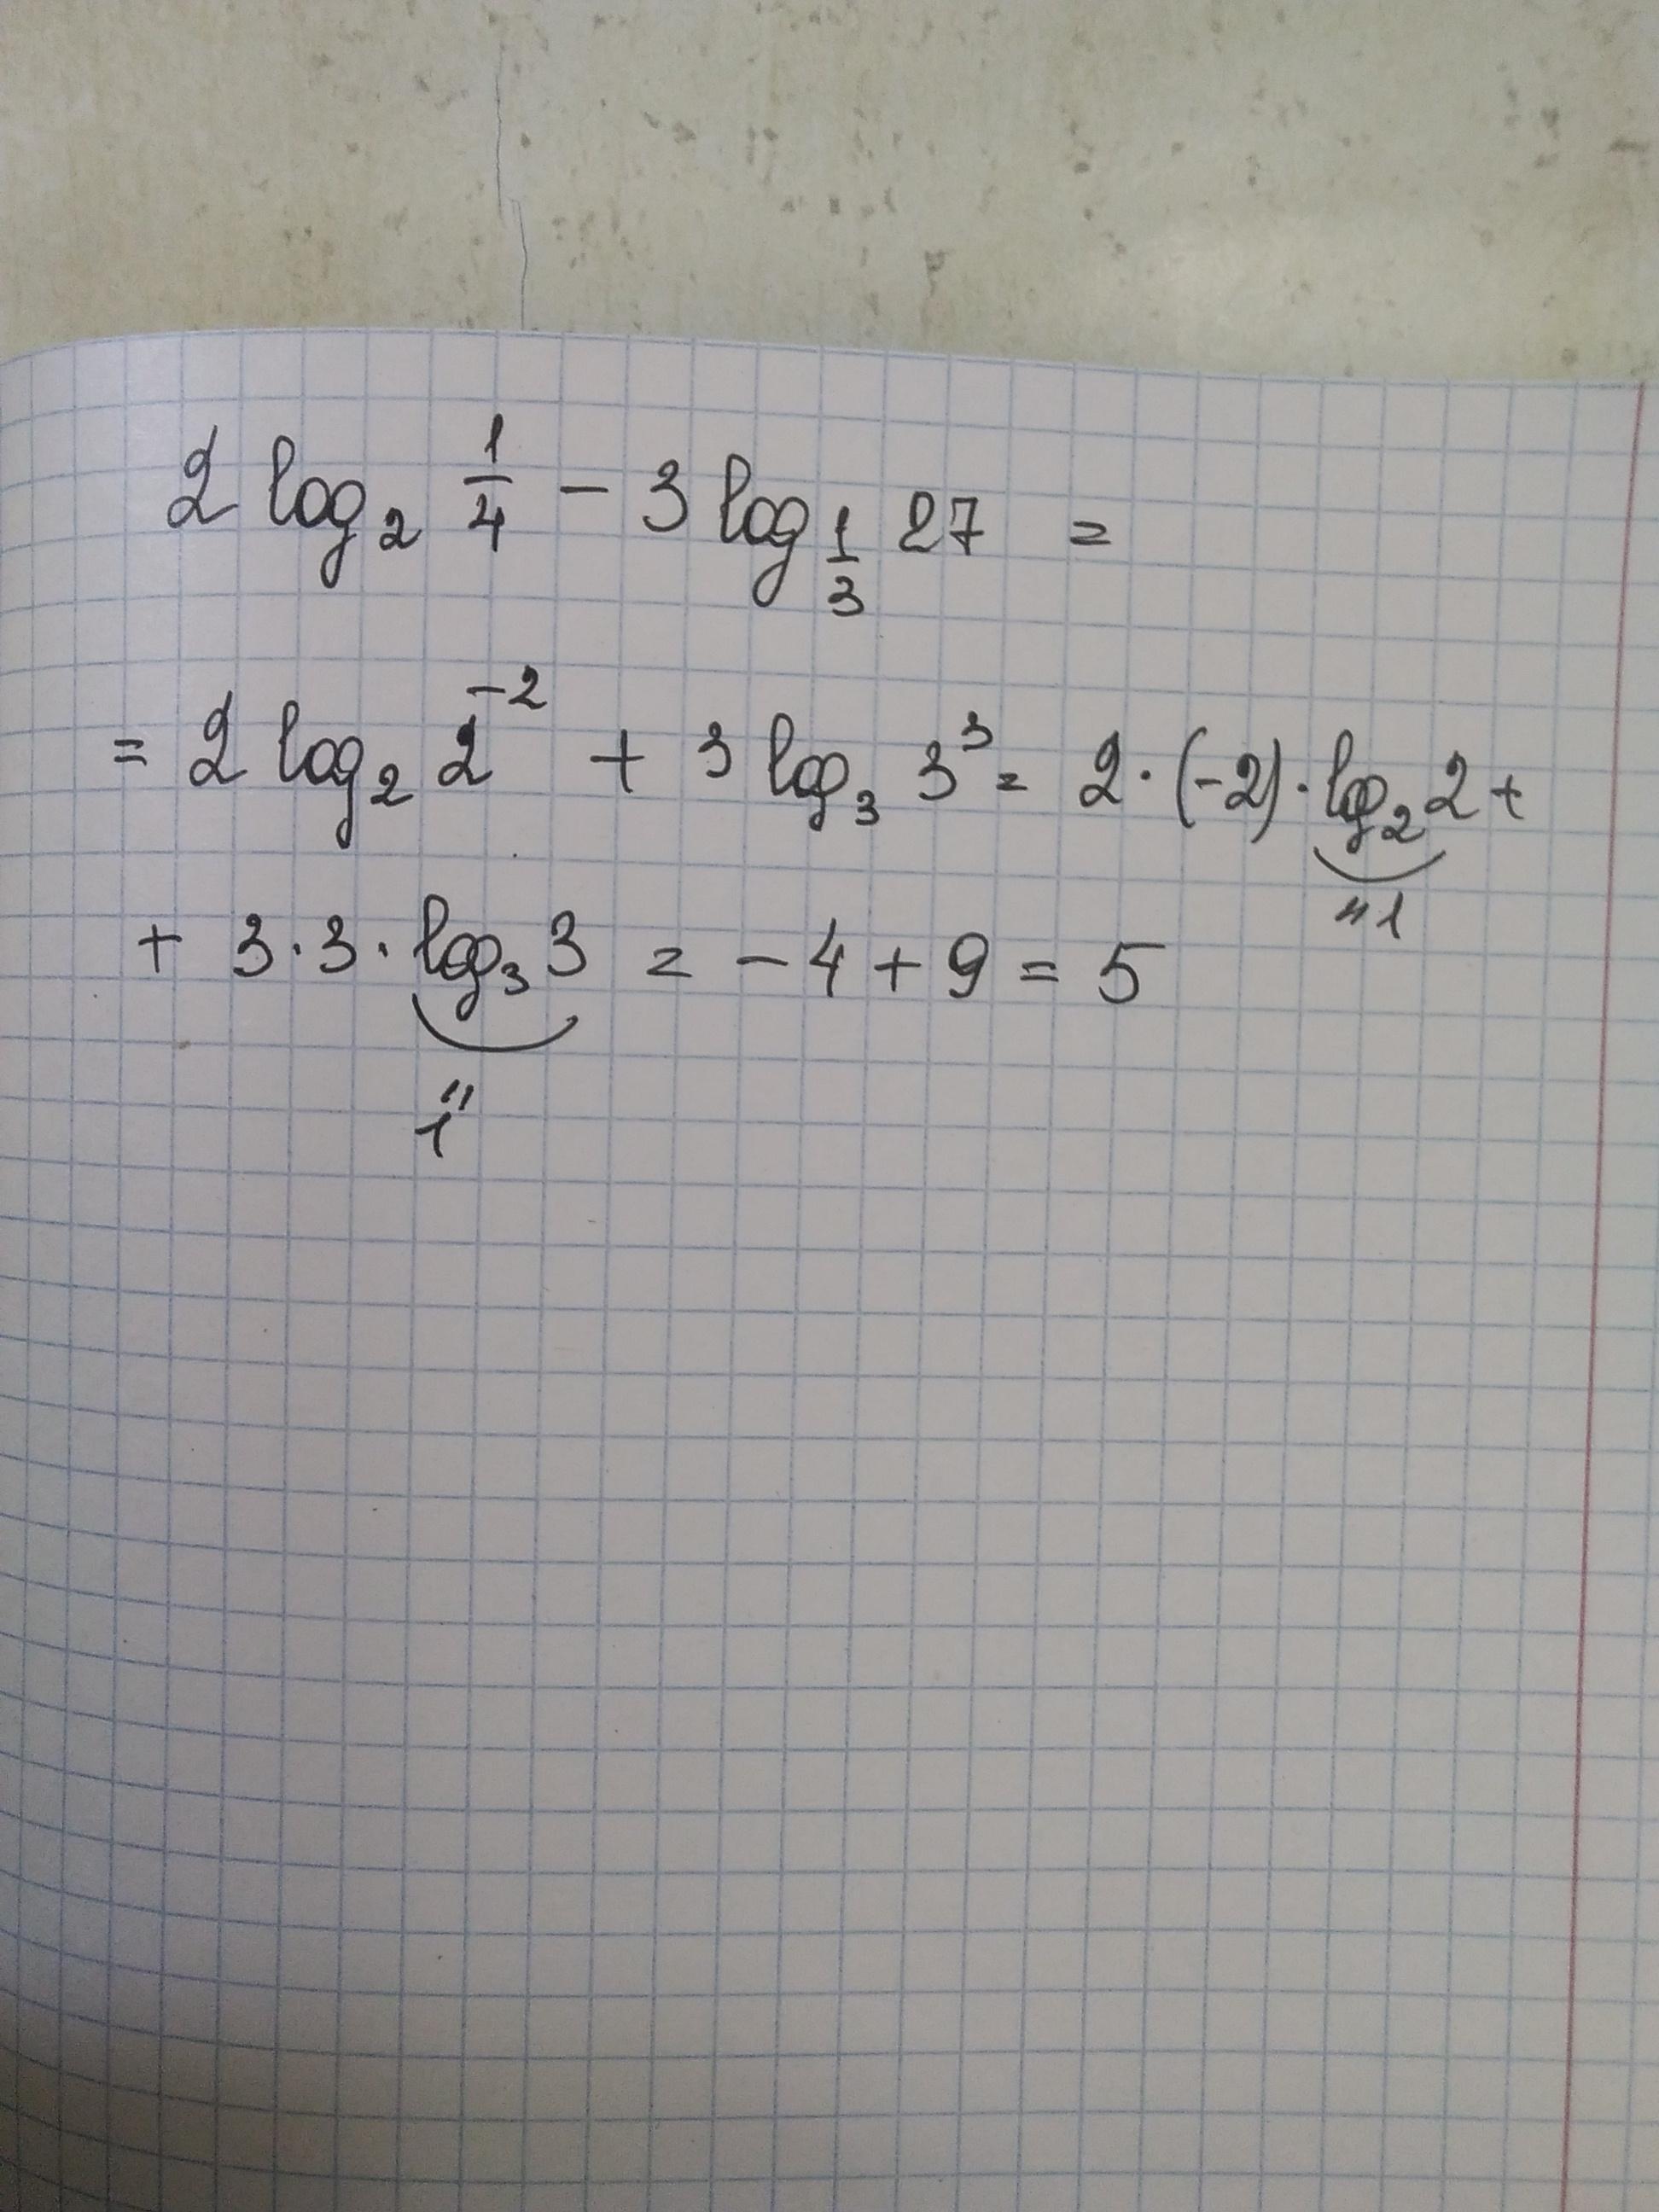 2 log₂ 1/4 − 3 log₁/₃ 27 =
= 2 log₂ 2⁻² + 3 log₃ 3³ = 2 · (−2) · log₂ 2 +
"1
+ 3 · 3 · log₃ 3 = − 4 + 9 = 5
1"